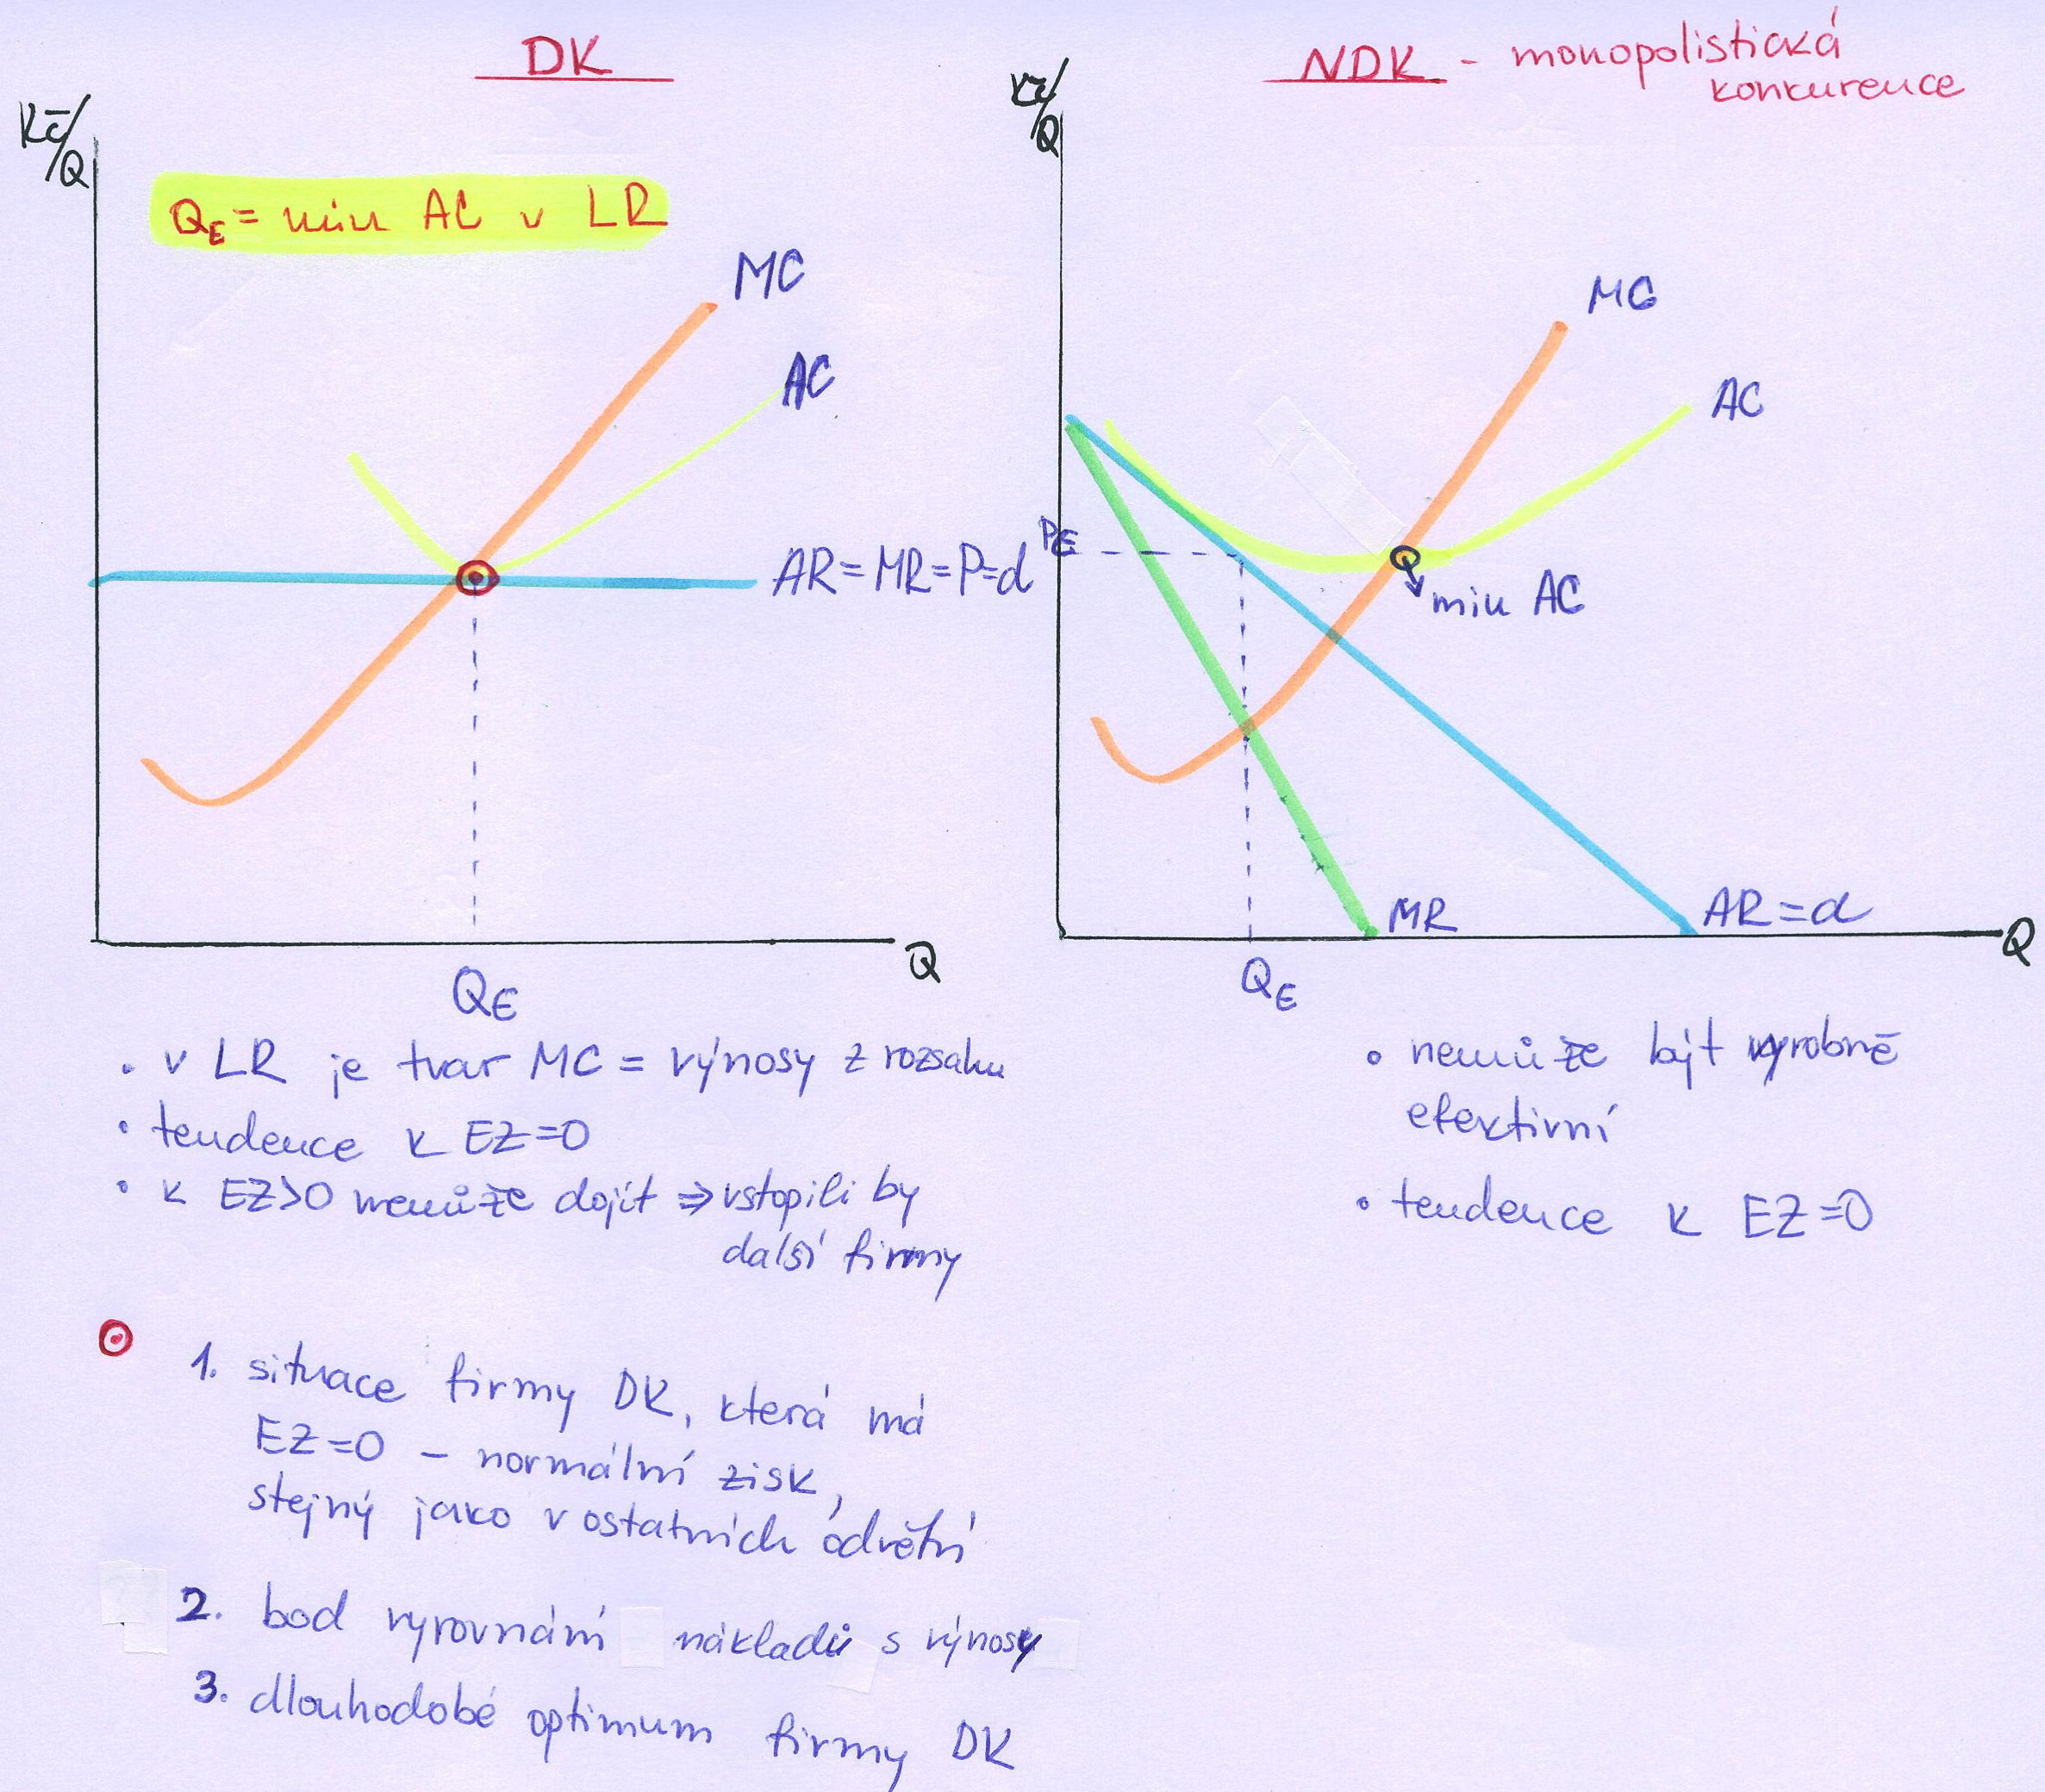 DK
Kč/Q
QE = min AC v LR
MC
AC
AR=MR=P=d
Q
QE
• v LR je tvar MC = výnosy z rozsahu
• tendence k EZ=0
• k EZ>0 nemůže dojít ⇒ vstopili by
další firmy
1. situace firmy DK, která má
EZ=0 – normální zisk,
stejný jako v ostatních odvětví
2. bod vyrovnání nákladů s výnosy
3. dlouhodobé optimum firmy DK
NDK - monopolistická
konkurence
Kč/Q
MC
AC
PE
min AC
MR
AR=d
Q
QE
• nemůže být výrobně
efektivní
• tendence k EZ=0